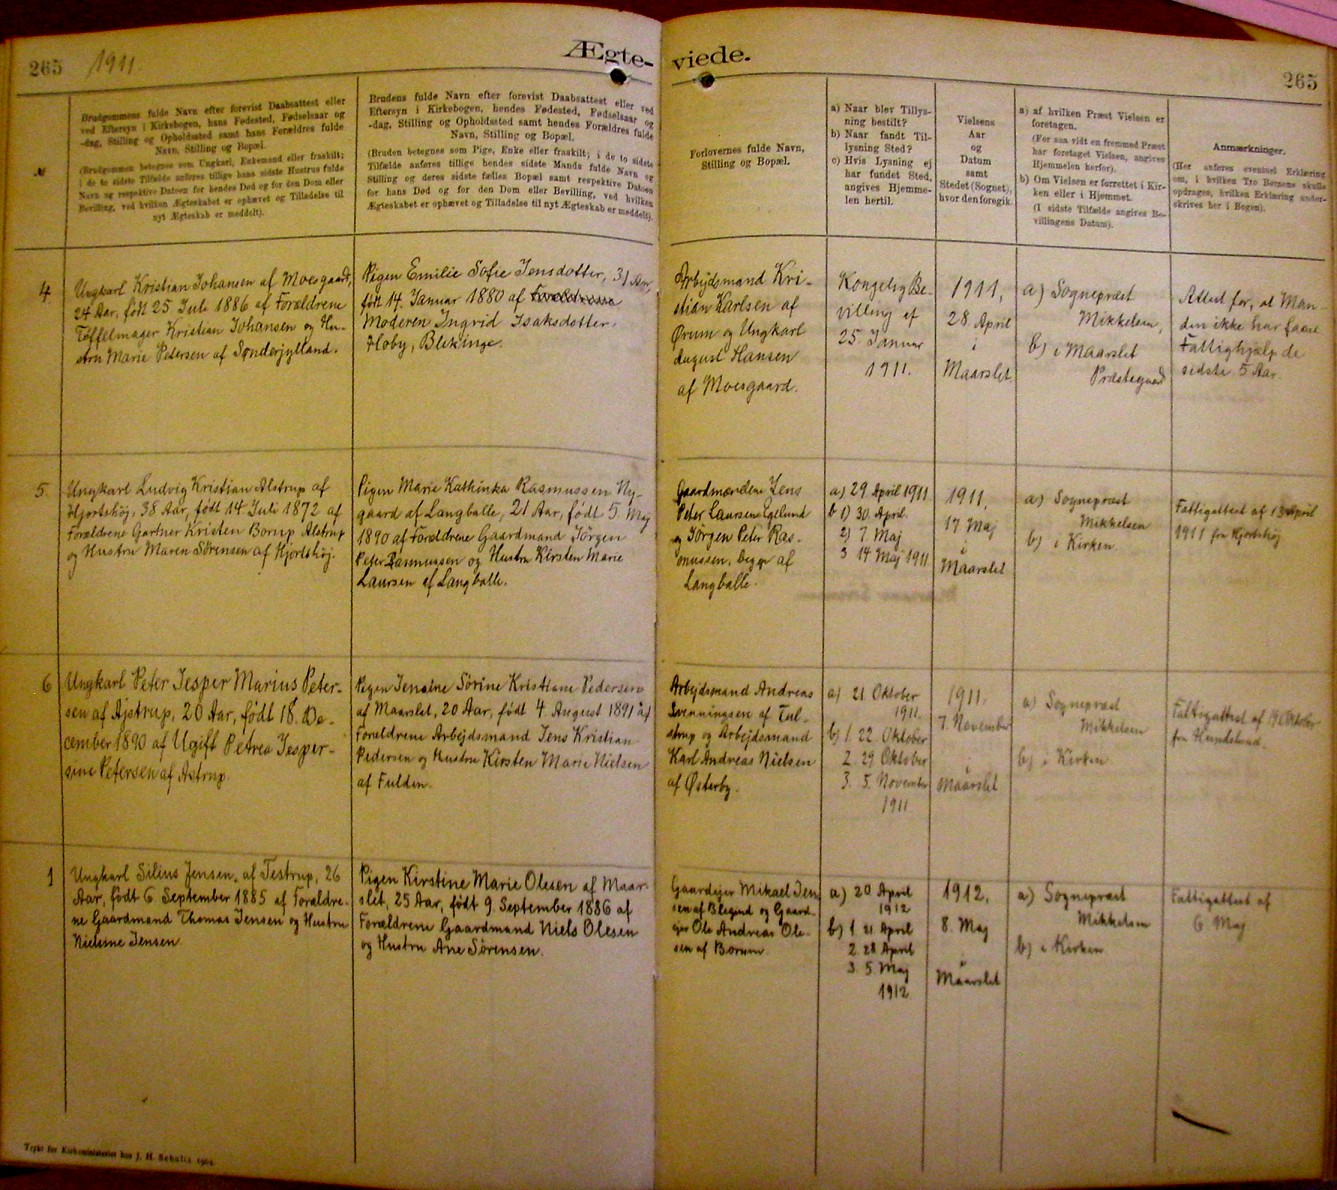 265 1911. Ægte-
viede. 265
№
Brudgommens fulde Navn efter forevist Daabsattest eller
ved Eftersyn i Kirkebogen, hans Fødested, Fødselsaar og
-dag, Stilling og Opholdssted samt hans Forældres fulde
Navn, Stilling og Bopæl.
(Brudgommen betegnes som Ungkarl, Enkemand eller fraskilt;
i de to sidste Tilfælde anføres tillige hans sidste Hustrus fulde
Navn og respektive Datoen for hendes Død og for den Dom eller
Bevilling, ved hvilken Ægteskabet er ophævet og Tilladelse til
nyt Ægteskab er meddelt).
Brudens fulde Navn efter forevist Daabsattest eller ved
Eftersyn i Kirkebogen, hendes Fødested, Fødselsaar og
-dag, Stilling og Opholdssted samt hendes Forældres fulde
Navn, Stilling og Bopæl.
(Bruden betegnes som Pige, Enke eller fraskilt; i de to sidste
Tilfælde anføres tillige hendes sidste Mands fulde Navn og
Stilling og deres sidste fælles Bopæl samt respektive Datoen
for hans Død og for den Dom eller Bevilling, ved hvilken
Ægteskabet er ophævet og Tilladelse til nyt Ægteskab er meddelt).
Forlovernes fulde Navn,
Stilling og Bopæl.
a) Naar blev Tillys-
ning bestilt?
b) Naar fandt Til-
lysning Sted?
c) Hvis Lysning ej
har fundet Sted,
angives Hjemme-
len hertil.
Vielsens
Aar
og
Datum
samt
Stedet (Sognet),
hvor den foregik.
a) af hvilken Præst Vielsen er
foretagen.
(For saa vidt en fremmed Præst
har foretaget Vielsen, angives
Hjemmelen herfor).
b) Om Vielsen er forrettet i Kir-
ken eller i Hjemmet.
(I sidste Tilfælde angives Be-
villingens Datum).
Anmærkninger.
(Her anføres eventuel Erklæring
om, i hvilken Tro Børnene skulle
opdrages, hvilken Erklæring under-
skrives her i Bogen).
4.
Ungkarl Kristian Johansen af Moesgaard,
24 Aar, født 25 Juli 1886 af Forældrene
Töffelmager Kristian Johansen og Hu-
stru Marie Petersen af Sønderjylland.
Pigen Emilie Sofie Jensdotter, 31 Aar,
født 14. Januar 1880 af Forældrene
Moderen Ingrid Isaksdotter,
Hoby, Blekinge.
Arbejdsmand Kri-
stian Karlsen af
Ørum og Ungkarl
August Hansen
af Moesgaard.
Kongelig Be-
villing af
25 Januar
1911.
1911,
28 April
i
Maarslet
a) Sognepræst
Mikkelsen,
b) i Maarslet
Præstegaard
Attest for, at Man-
den ikke har faaet
Fattighjælp de
sidste 5 Aar.
5.
Ungkarl Ludvig Kristian Alstrup af
Hjortshöj, 38 Aar, født 14 Juli 1872 af
Forældrene Gartner Kristen Borup Alstrup
og Hustru Maren Sørensen af Hjortshöj.
Pigen Marie Kathinka Rasmussen Ny-
gaard af Langballe, 21 Aar, født 5. Maj
1890 af Forældrene Gaardmand Jörgen
Peter Rasmussen og Hustru Kirsten Marie
Laursen af Langballe.
Gaardmændene Jens
Peter Laursen Egelund
og Jörgen Peter Ras-
mussen, begge af
Langballe.
a) 29 April 1911
b 1) 30. April
2) 7. Maj
3 14 Maj 1911
1911,
17 Maj
i
Maarslet
a) Sognepræst
Mikkelsen
b) i Kirken
Fattigattest af 13 April
1911 fra Hjortshöj
6
Ungkarl Peter Jesper Marius Peter-
sen af Ajstrup, 20 Aar, født 18. De-
cember 1890 af Ugift Petrea Jesper-
sine Petersen af Astrup.
Pigen Jensine Sörine Kristiane Pedersen
af Maarslet, 20 Aar, født 4 August 1891 af
Forældrene Arbejdsmand Jens Kristian
Pedersen og Hustru Kirsten Marie Nielsen
af Fulden.
Arbejdsmand Andreas
Svenningsen af Tul-
strup og Arbejdsmand
Karl Andreas Nielsen
af Østerby.
a) 21 Oktober
1911
b) 1. 22. Oktober
2. 29. Oktober
3. 5. November
1911
1911.
7. November
i
Maarslet
a) Sognepræst
Mikkelsen
b) i Kirken
Fattigattest af Oktober
fra Hundslund.
1
Ungkarl Silius Jensen, af Testrup, 26
Aar, født 6. September 1885 af Forældre-
ne Gaardmand Thomas Jensen og Hustru
Nielsine Jensen.
Pigen Kirstine Marie Olesen af Maar-
slet, 25 Aar, født 9. September 1886 af
Forældrene Gaardmand Niels Olesen
og Hustru Ane Sørensen.
Gaardejer Mikael Jen
sen af Blegind og Gaard-
ejer Ole Andreas Ole-
sen af Borum.
a) 20 April
1912
b) 1 21 April
2. 28 April
3. 5 Maj
1912
1912.
8. Maj
i
Maarslet
a) Sognepræst
Mikkelsen
b) i Kirken
Fattigattest af
6 Maj
Trykt for Kirkeministeriet hos J. H. Schultz 1904.